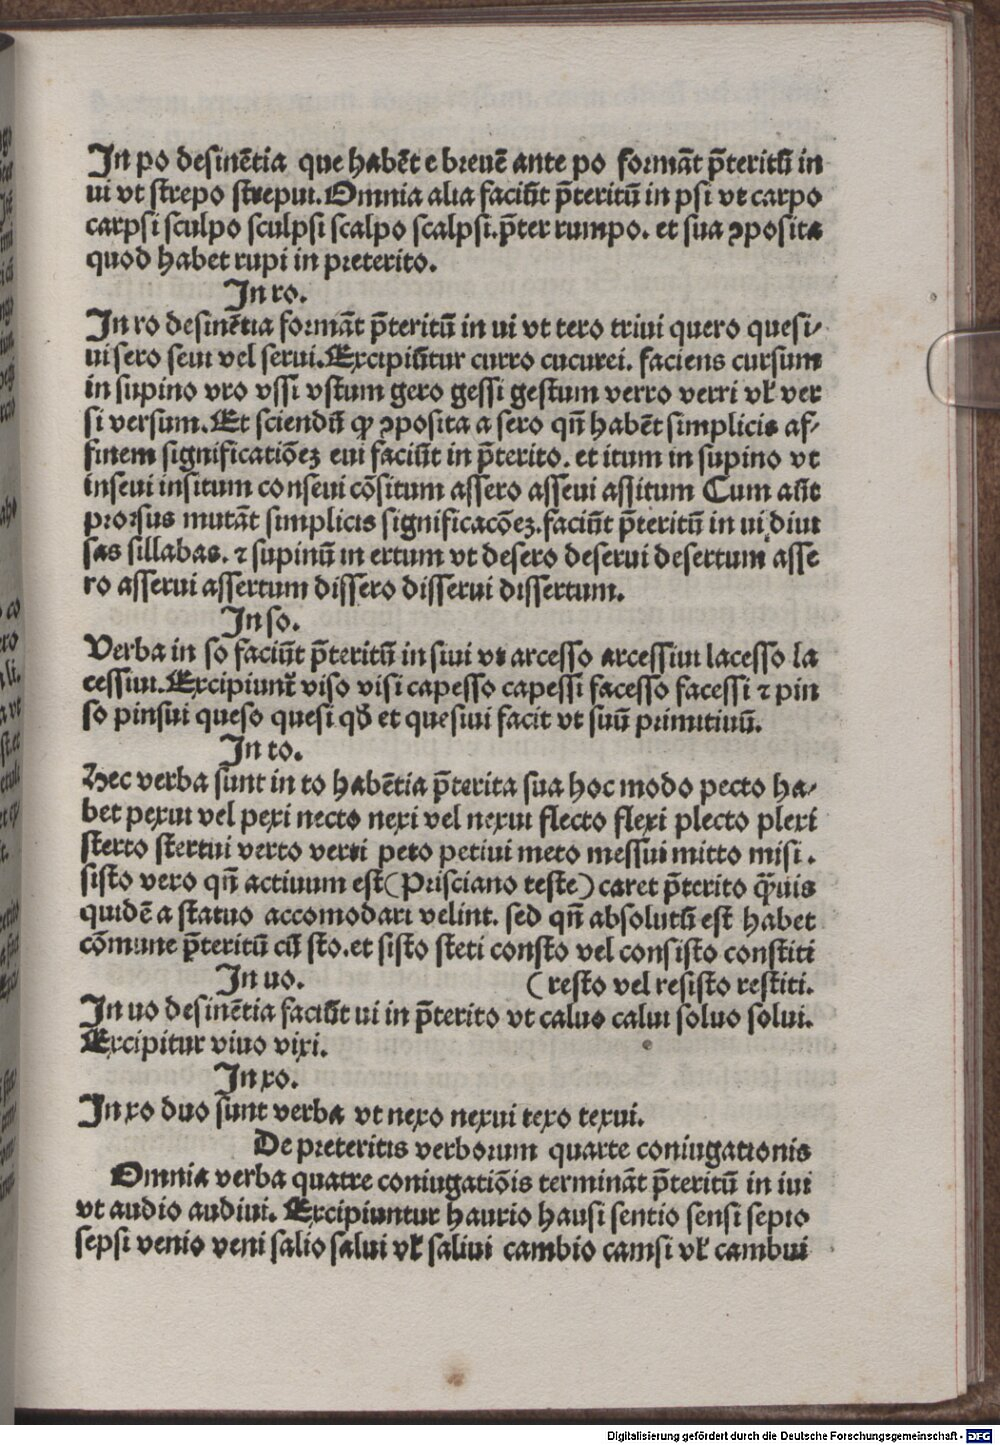 In po desinẽtia que habẽt e breuẽ ante po formãt p̃teritũ in
ui vt strepo strepui. Omnia alia faciũt p̃teritũ in psi vt carpo
carpsi sculpo sculpsi scalpo scalpsi. p̃ter rumpo. et sua ꝯposita
quod habet rupi in preterito.
In ro.
In ro desinẽtia formãt p̃teritũ in ui vt tero triui quero quesi⸗
ui sero seui vel serui. Excipiũtur curro cucurri. faciens cursum
in supino vro vssi vstum gero gessi gestum verro verri vł ver
si versum. Et sciendũ ꝙ ꝯposita a sero qñ habẽt simplicis af⸗
finem significatiõeꝫ eui faciũt in p̃terito. et itum in supino vt
inseui insitum conseui cõsitum assero asseui assitum Cum aũt
prorsus mutãt simplicis significacõeꝫ. faciũt p̃teritũ in ui diui
sas sillabas. ⁊ supinũ in ertum vt desero deserui desertum asse
ro asserui assertum dissero disserui dissertum.
In so.
Verba in so faciũt p̃teritũ in siui vt arcesso arcessiui lacesso la
cessiui. Excipiunt̃ viso visi capesso capessi facesso facessi ⁊ pin
so pinsui queso quesi qđ et quesiui facit vt suũ primitiuũ.
In to.
Hec verba sunt in to habẽtia p̃terita sua hoc modo pecto ha⸗
bet pexui vel pexi necto nexi vel nexui flecto flexi plecto plexi
sterto stertui verto verti peto petiui meto messui mitto misi.
sisto vero qñ actiuum est (Prisciano teste) caret p̃terito q̃uis
quidẽ a statuo accomodari velint. sed qñ absolutũ est habet
cõmune p̃teritũ cũ sto. et sisto steti consto vel consisto constiti
In uo. (resto vel resisto restiti.
In uo desinẽtia faciũt ui in p̃terito vt caluo calui soluo solui.
Excipitur viuo vixi.
In xo.
In xo duo sunt verba vt nexo nexui texo texui.
De preteritis verborum quarte coniugationis
Omnia verba quatre coniugatiõis terminãt p̃teritũ in iui
vt audio audiui. Excipiuntur haurio hausi sentio sensi sepio
sepsi venio veni salio salui vł saliui cambio camsi vł cambui
Digitalisierung gefördert durch die Deutsche Forschungsgemeinschaft - DFG